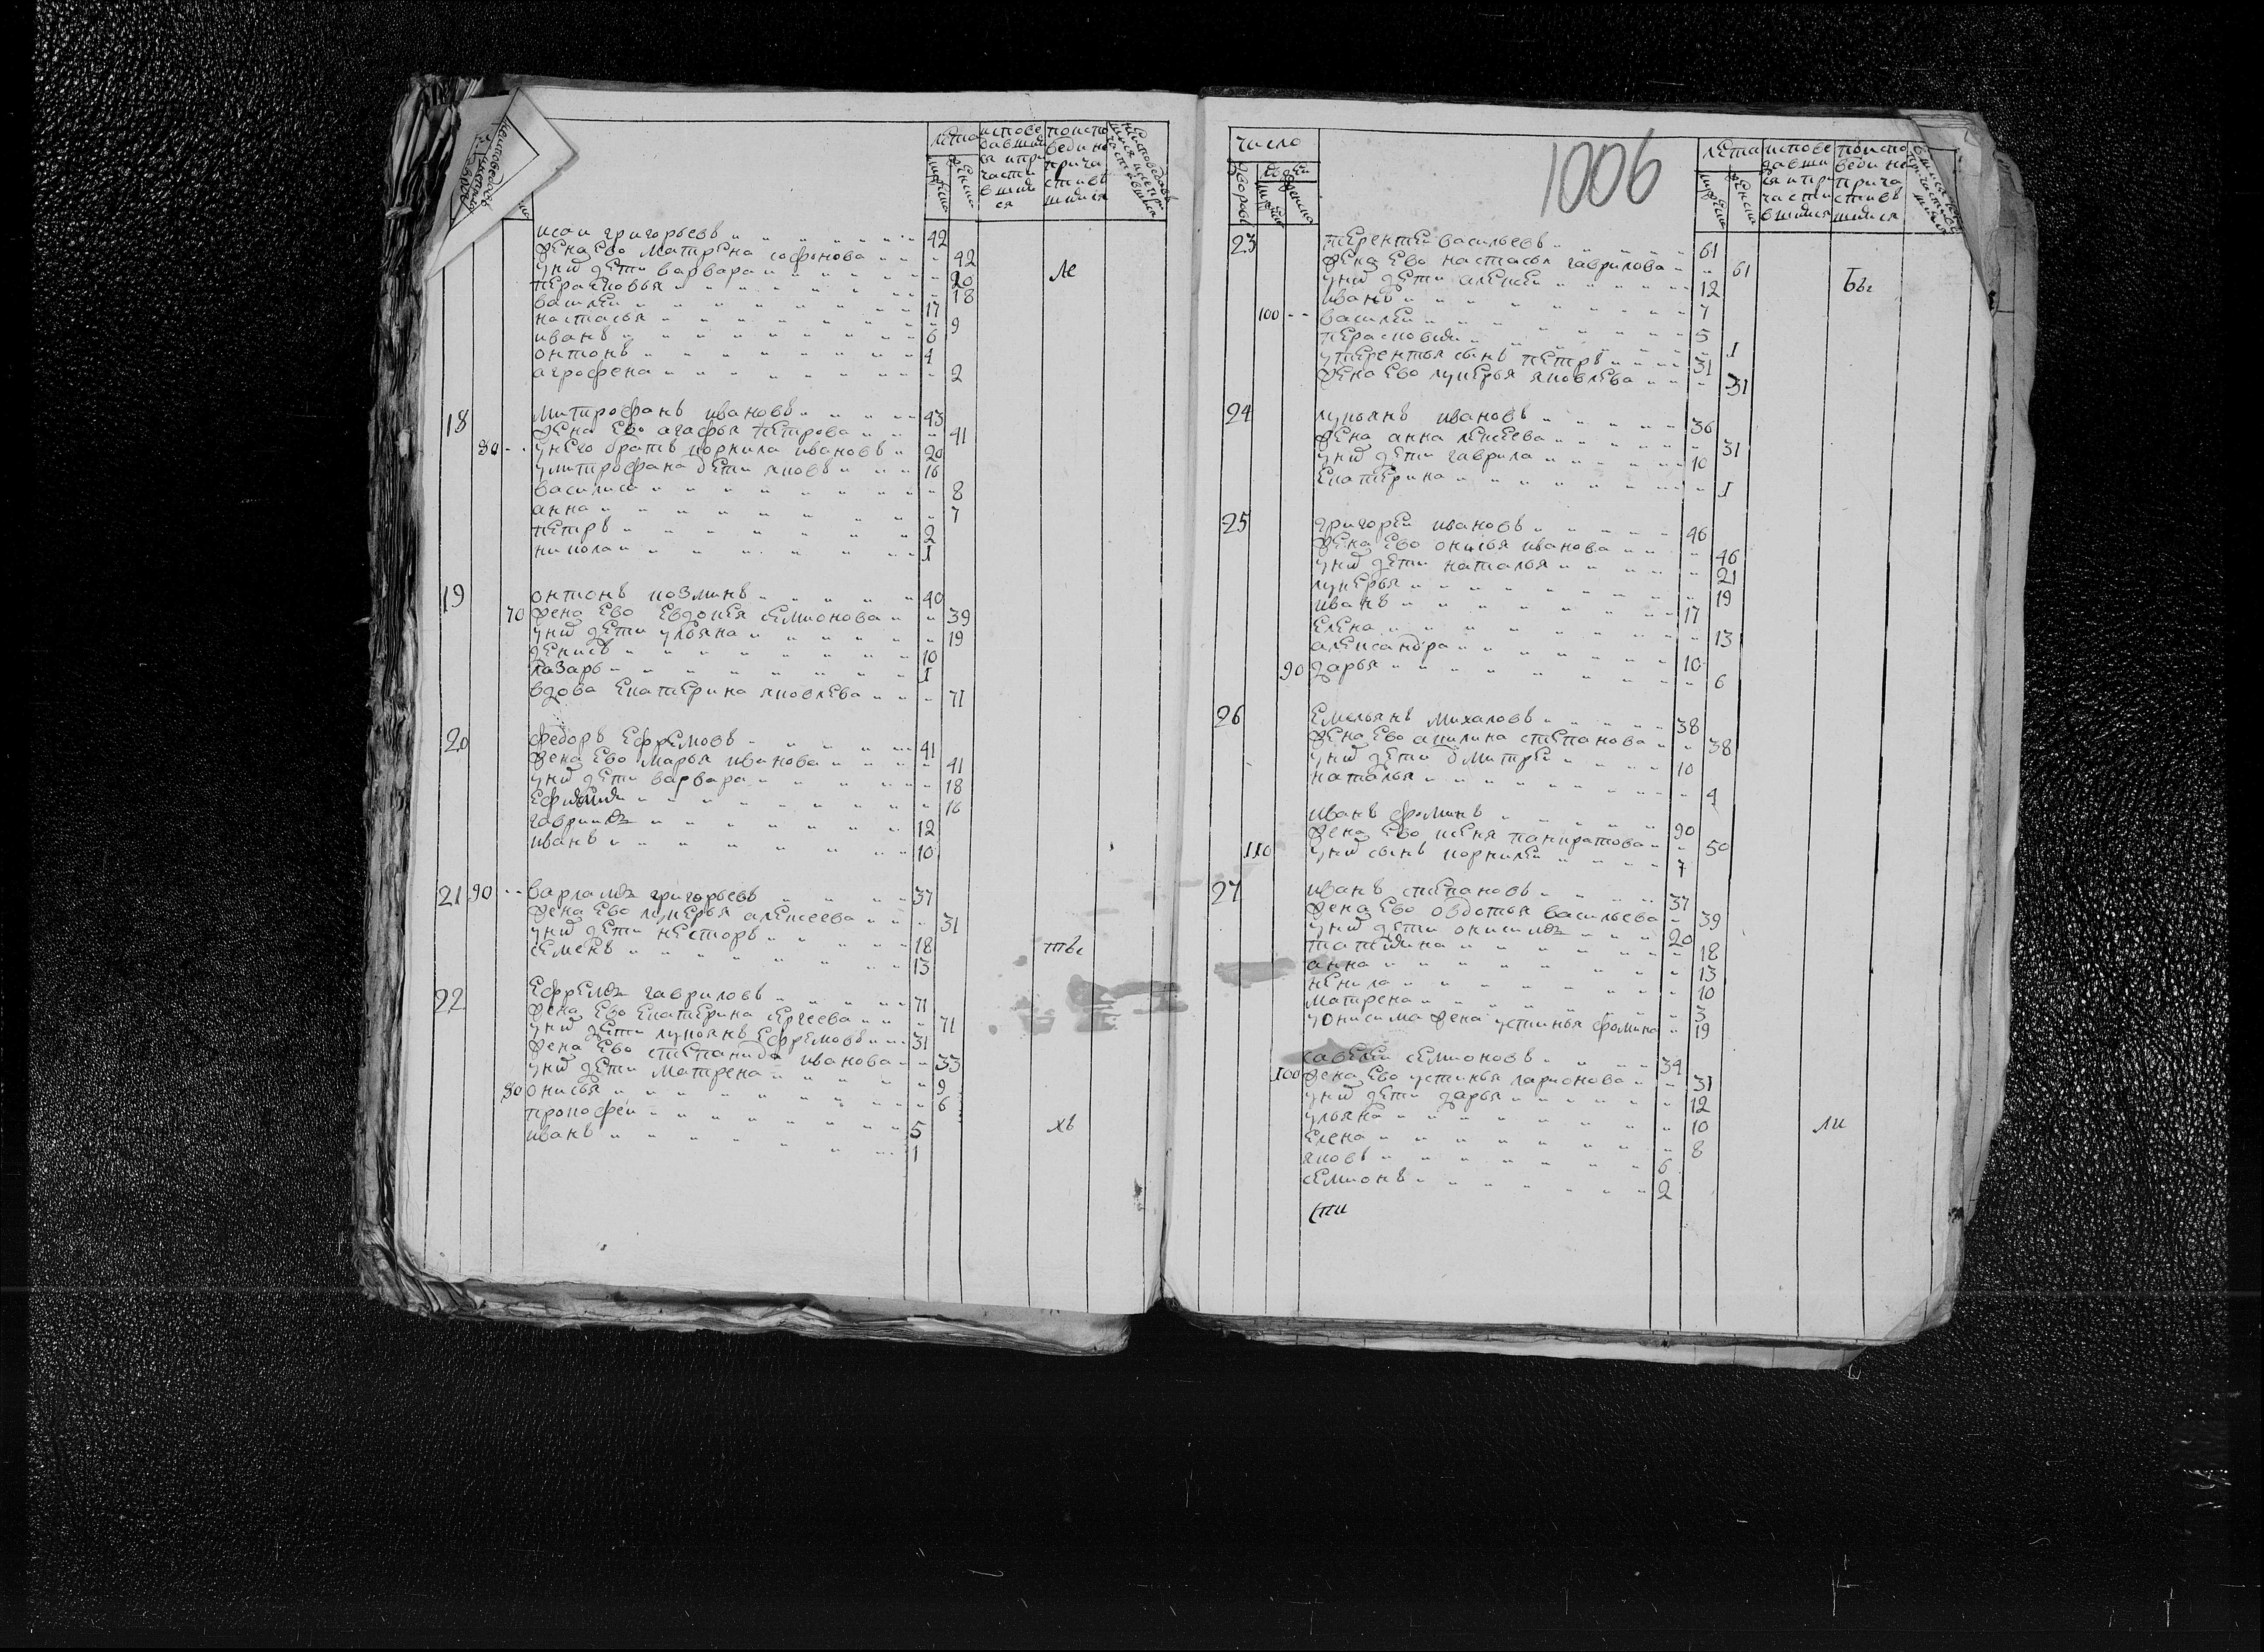 лѣта
исповедавшия ся и причастившияся
по исповеди не причастившияся
мужеска
женска
исаи григорьевъ 42
жена ево матрена софонова 42
у них дети варвара 20
Ле
перасковья 18
василеи 17
настасья 9
иванъ 6
онтонъ 4
агрофена 2
18 митрофанъ ивановъ 43
жена ево агафья петрова 41
80 у него братъ корнила ивановъ 20
у митрофана дети яковъ 16
василиса 8
анна 7
петръ 2
никола 1
19 онтонъ козминъ 40
70 жена ево евдокея семионова 39
у них дети ульяна 19
денисъ 10
лазарь 1
вдова екатерина яковлева 71
20 федоръ ефремовъ 41
жена ево марья иванова 41
у них дети варвара 18
16
12
иванъ 10
21 90 варламъ григорьевъ 37
жена ево лукерья алексеева 31
у них дети несторъ 18
твы
семенъ 13
22 ефремъ гавриловъ 71
жена ево екатерина сергеева 71
у них дети лукьянъ ефремовъ 31
жена ево степанида иванова 33
у них дети матрена 9
80 онисья 6
прокофеи 5
хъ
иванъ 1
1006
число
лѣта
исповедавшияся и причастившияся
по исповеди не причастившияся
дворовъ
людеи
мужеска
женска
23 терентеи васильевъ 61
жена ево настасья гаврилова 61
у них дети алексеи 12
Бы
иванъ 7
100 василеи 5
перасковия 1
у терентья сынъ петръ 31
жена ево лукерья яковлева 31
24 лукьянъ ивановъ 36
жена анна лексеева 31
у них дети гаврила 10
екатерина 1
25 григореи ивановъ 46
жена ево онисья иванова 46
у них дети наталья 21
лукерья 19
иванъ 17
елена 13
александра 10
90 дарья 6
26 емельянъ михаловъ 38
жена ево акилина степанова 38
у них дети дмитреи 10
наталья 4
иванъ фоминъ 90
жена ево ксеня панкратова 50
110 у них сынъ корнилеи 7
27 иванъ степановъ 37
жена ево овдотья васильева 39
у них дети онисимъ 20
18
анна 13
ненила 10
матрена 3
у онисима жена устинья фомина 19
савелеи семионовъ 34
100 жена ево устинья ларионова 31
у них дети дарья 12
ульяна 10
ли
елена 8
яковъ 6
семионъ 2
сти